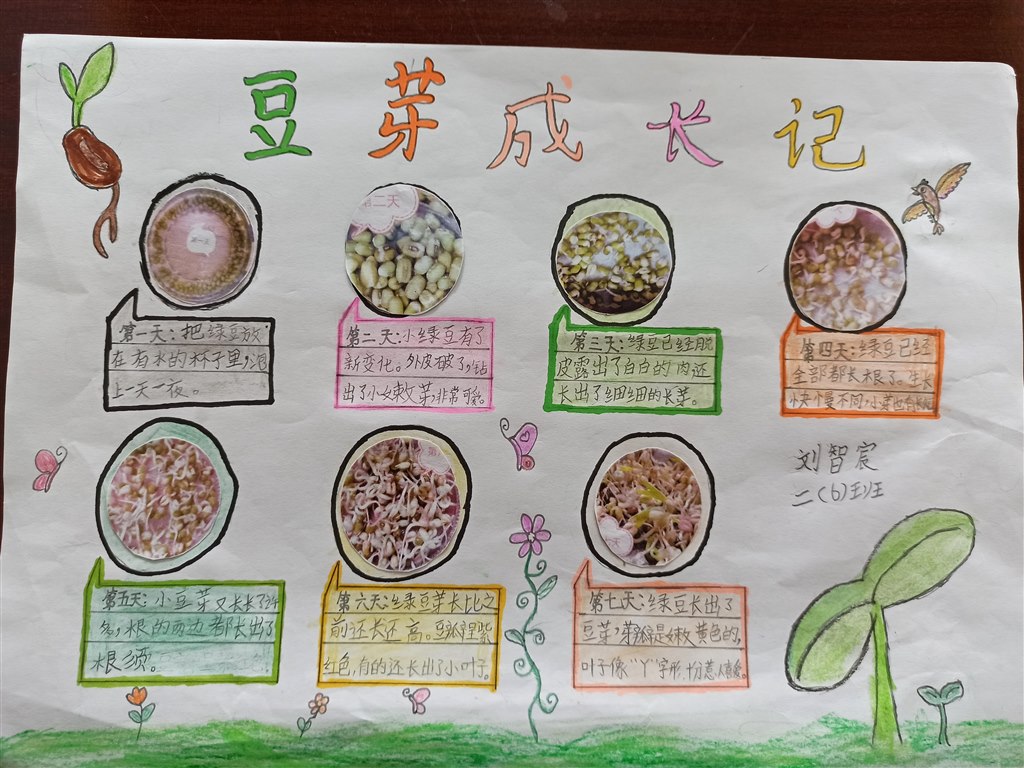 豆芽成长记
第一天
第二天
第一天：把绿豆放
在有水的杯子里，泡
上一天一夜。
第二天：小绿豆有了
新变化。外皮破了，钻
出了小嫩芽，非常可爱。
第三天：绿豆已经脱
皮露出了白白的肉还
长出了细细的长芽。
第四天：绿豆已经
全部都长根了。生长
快个慢不同，小芽也有长
刘智宸
二（6）班
第
第五天：小豆芽又长长了许
多，根的两边都长出了
根须。
第六天：绿豆芽长比之
前还长还高。豆瓣呈紫
红色，有的还长出了小叶子。
第七天：绿豆长出了
豆芽，芽瓣是嫩黄色的，
叶子像“丫”字形，十分惹人喜爱。